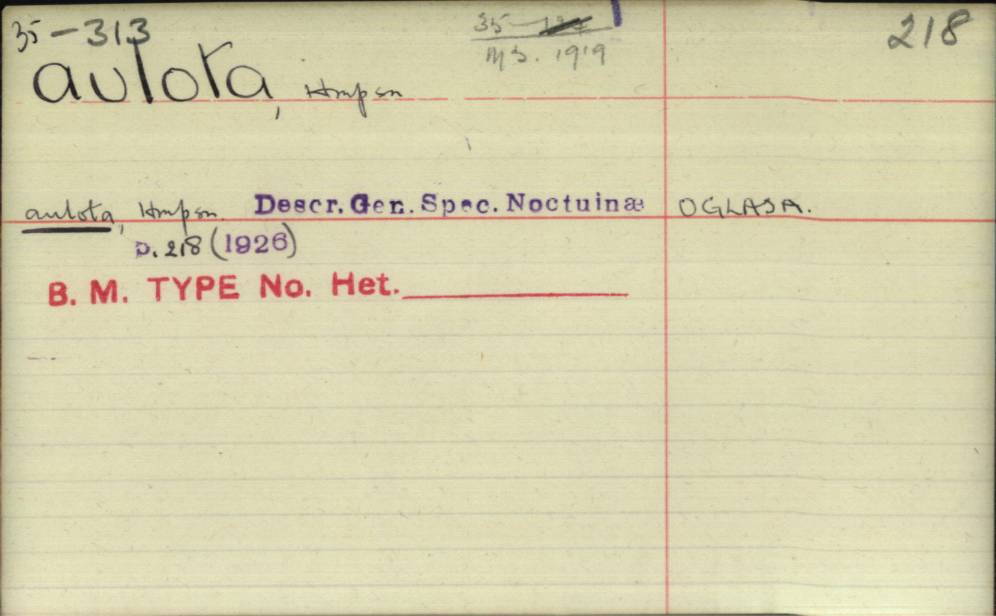 35-313
35-
MS. 1919
218
aulota, Hmpsn
aulota, Hmpsn. Descr. Gen. Spec. Noctuinæ OGLASA.
p. 218 (1926)
B. M. TYPE No. Het.